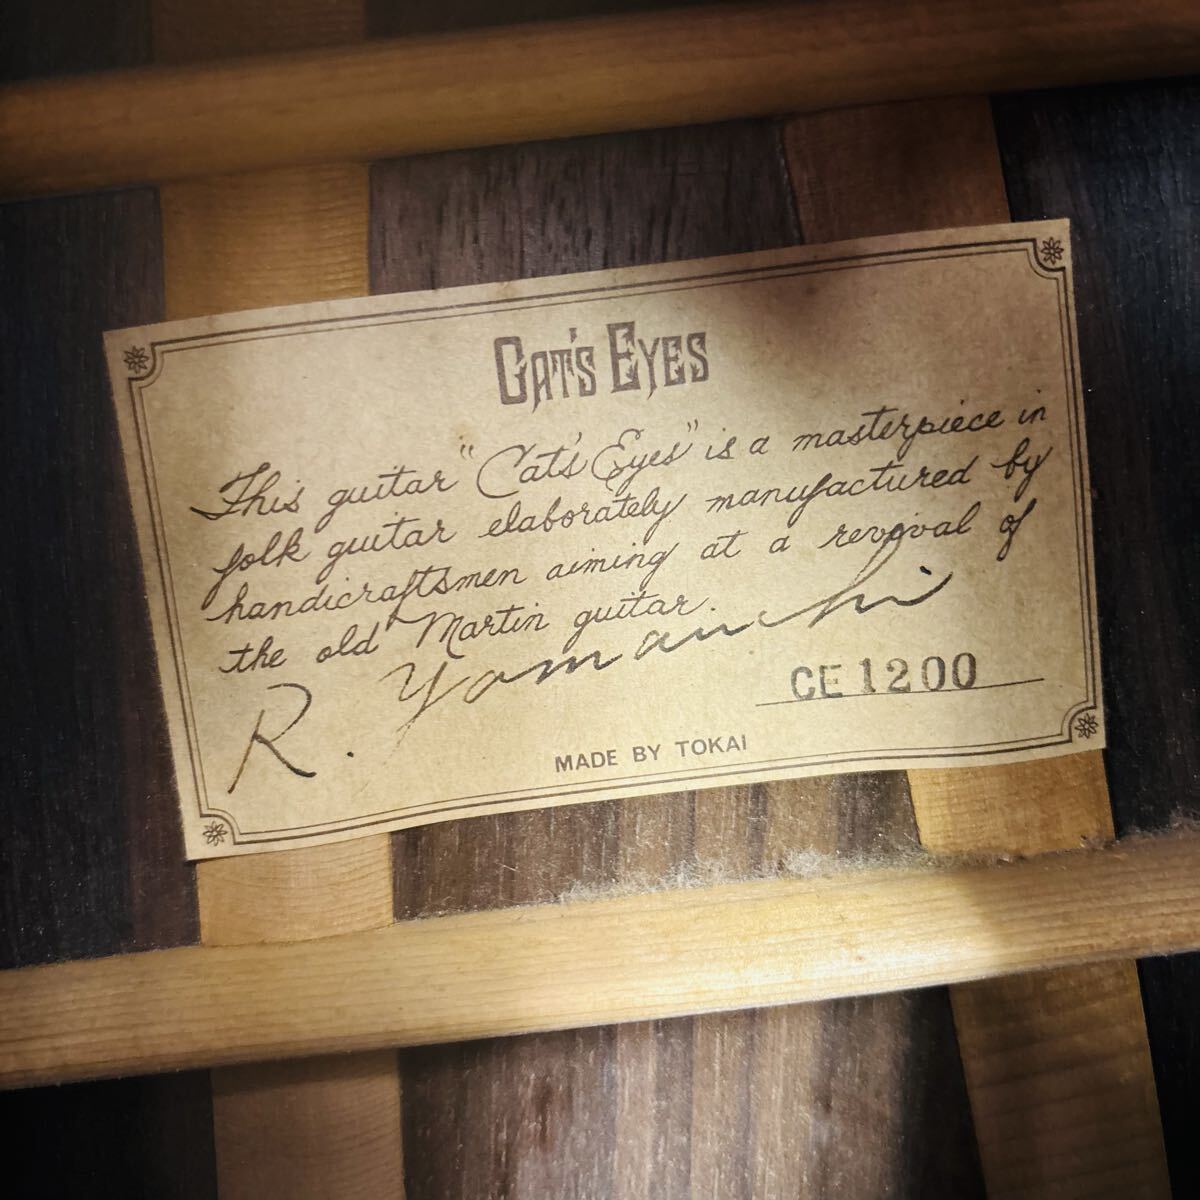 CAT'S EYES
This guitar "Cat's Eyes" is a masterpiece in
folk guitar elaborately manufactured by
handicraftsmen aiming at a revival of
the old Martin guitar.
R. Yamauchi
CE 1200
MADE BY TOKAI